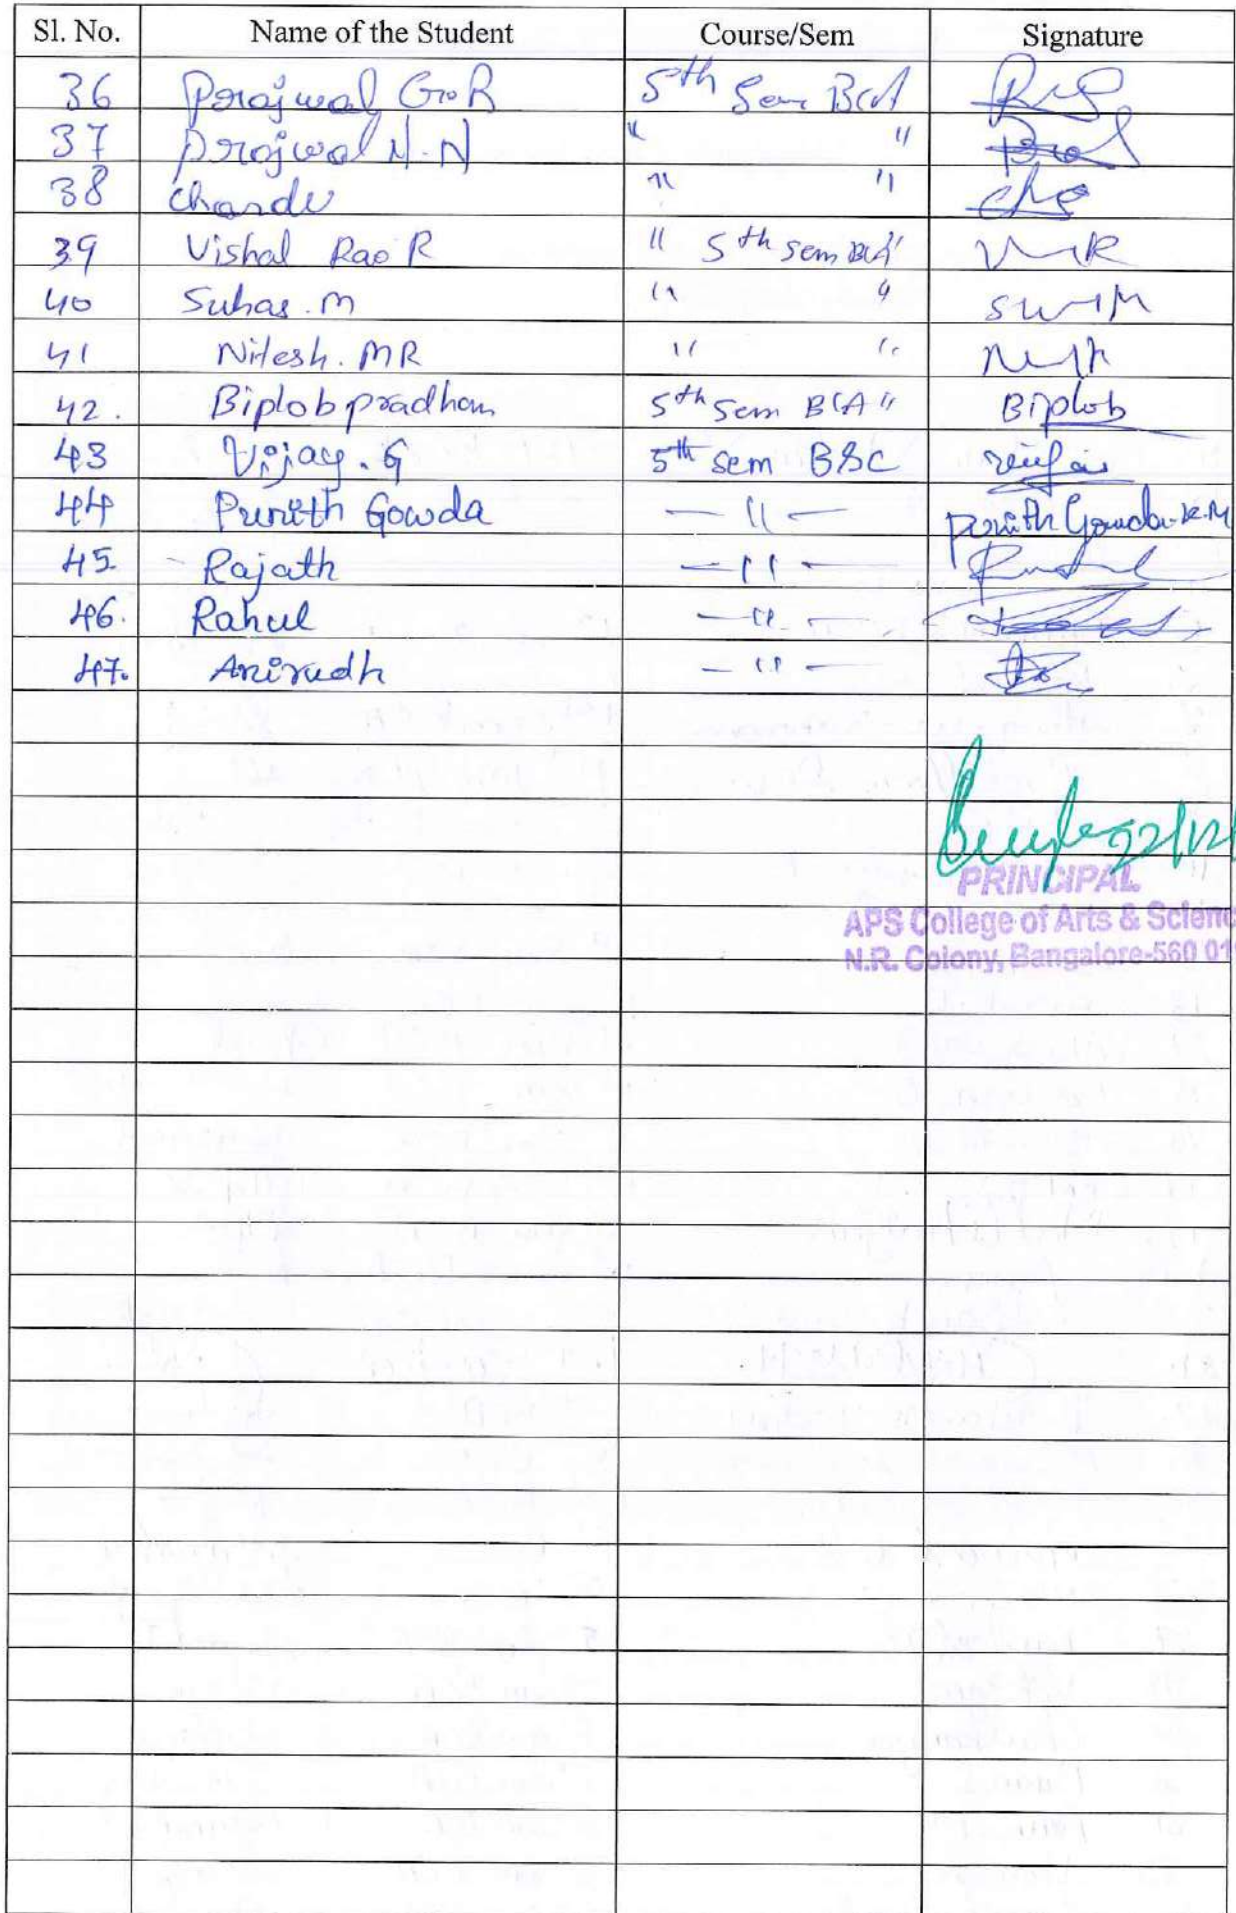 Sl. No. Name of the Student Course/Sem Signature
36 Prajwal G.R 5th Sem BCA
37 Prajwal N.N " "
38 Chandu " "
39 Vishal Rao R " 5th sem BCA"
40 Suhas.M " "
41 Nitesh.MR " "
42. Biplob pradhan 5th Sem BCA " Biplob
43 Vijay.G 5th sem BSC
44 Punith Gowda — " — Punith Gowda.K.M
45. Rajath — " —
46. Rahul — " —
47. Anirudh — " —
22/12/
PRINCIPAL
APS College of Arts & Scienc
N.R. Colony, Bangalore-560 01